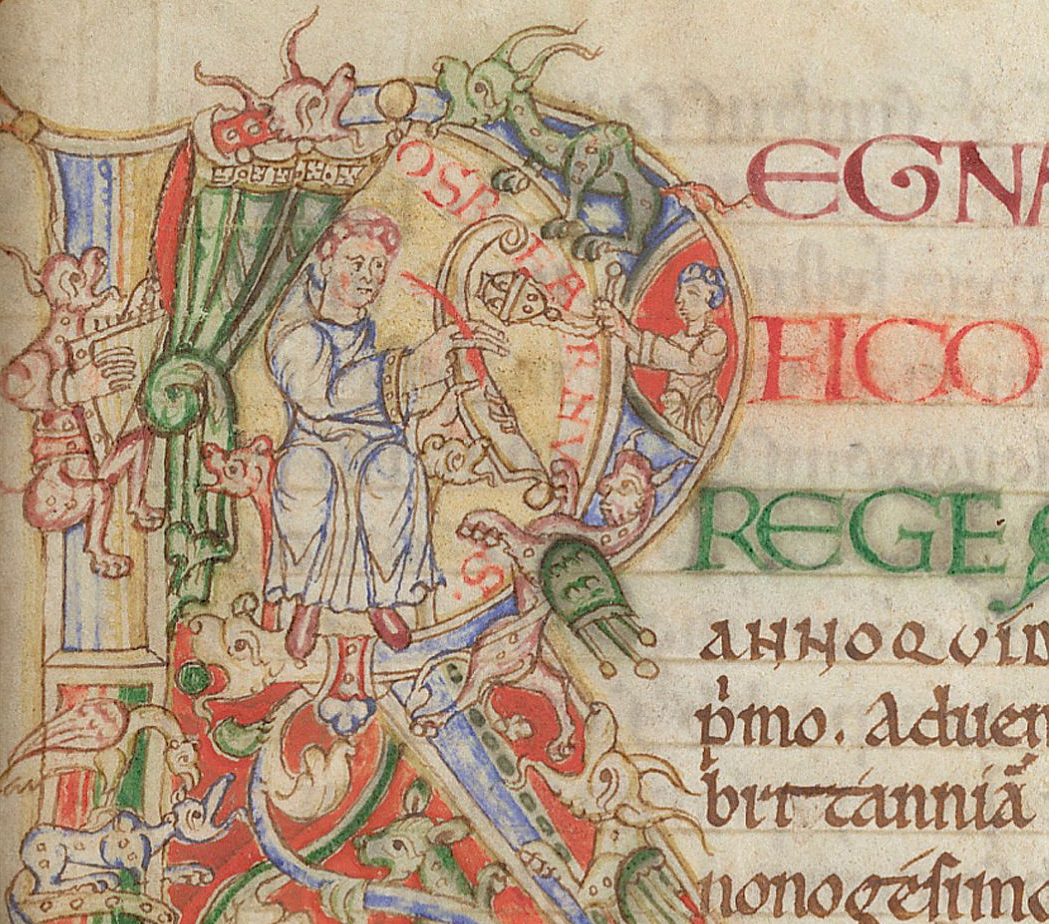 OSBEARNVS.
REGNA
FICO
REGE S
ANNO QVID
p̍mo. Aduen
brittanniā
nonogesimo